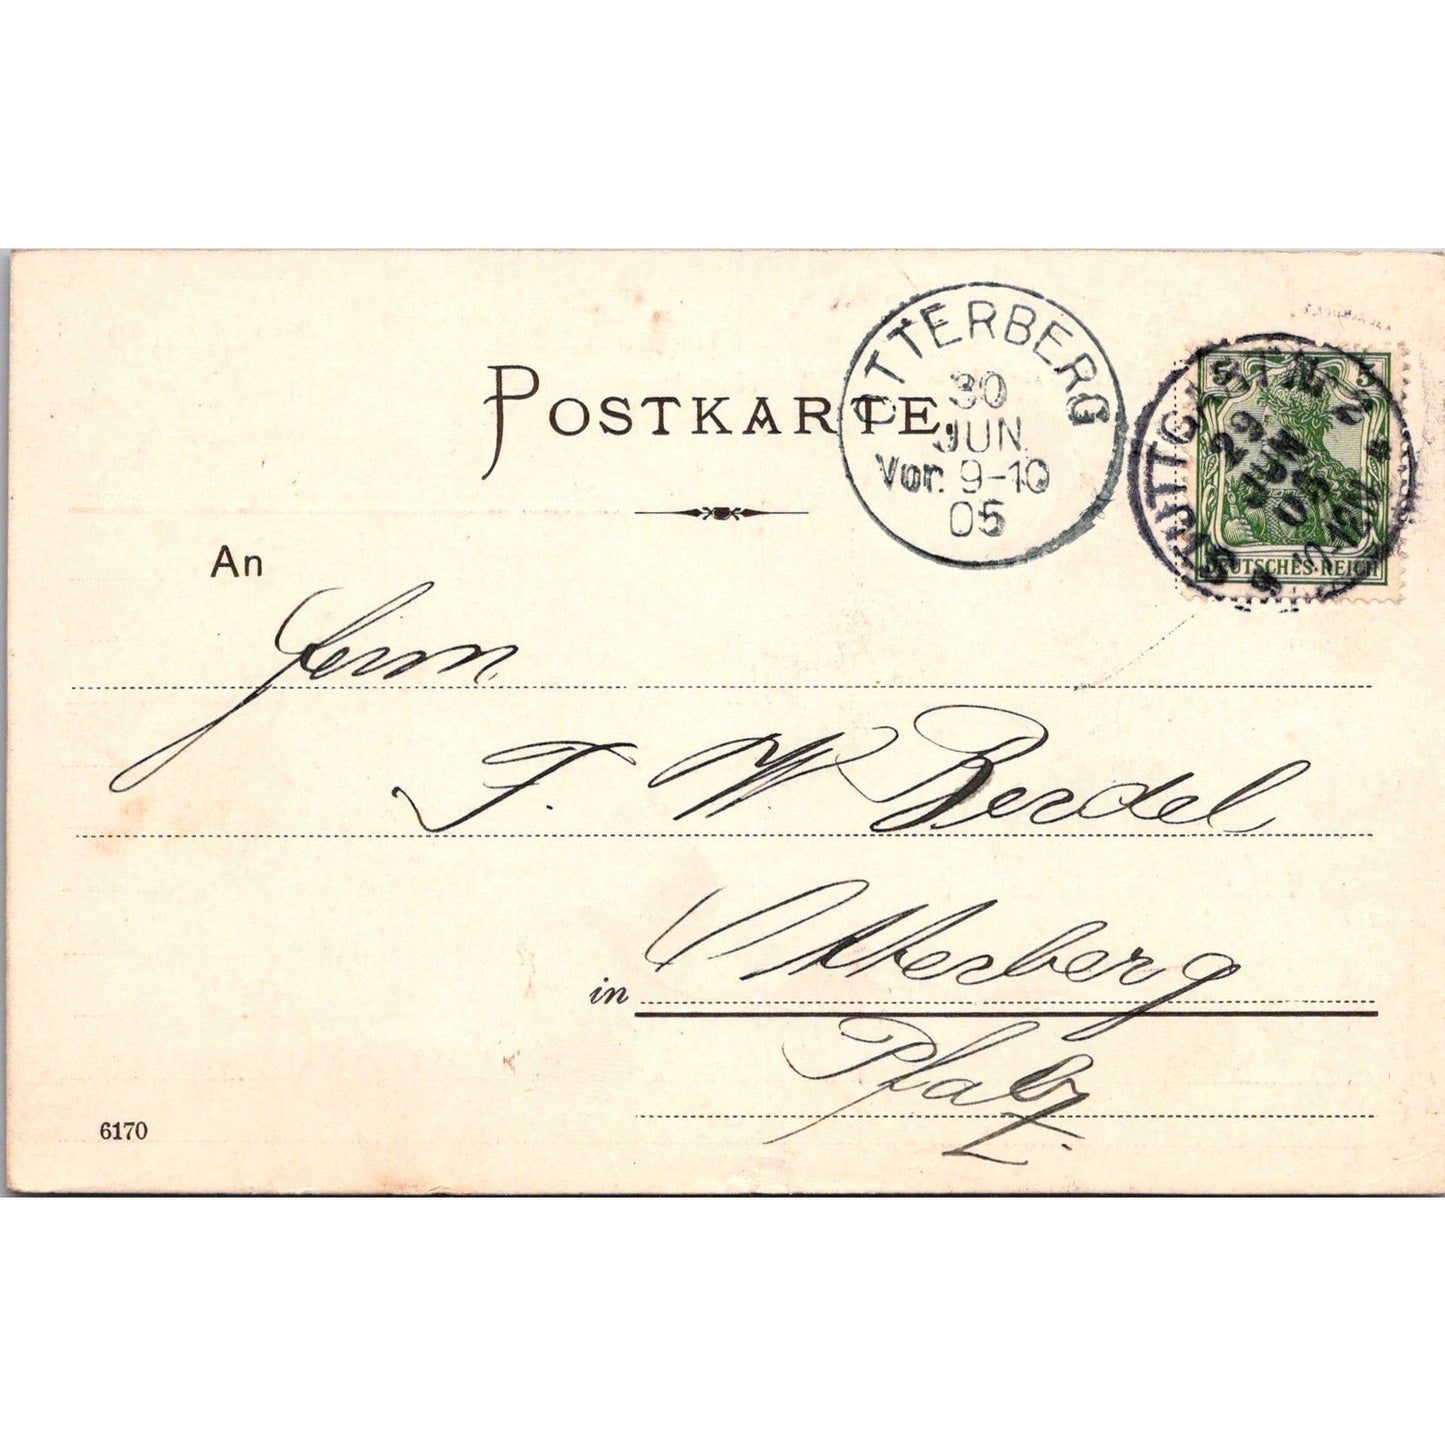 POSTKARTE
OTTERBERG
30
JUN
Vor. 9-10
05
STUTTGART Nr.
29
JUN
05
5
DEUTSCHES REICH
An
Herrn
F. W. Berdel
in Otterberg
Pfalz.
6170